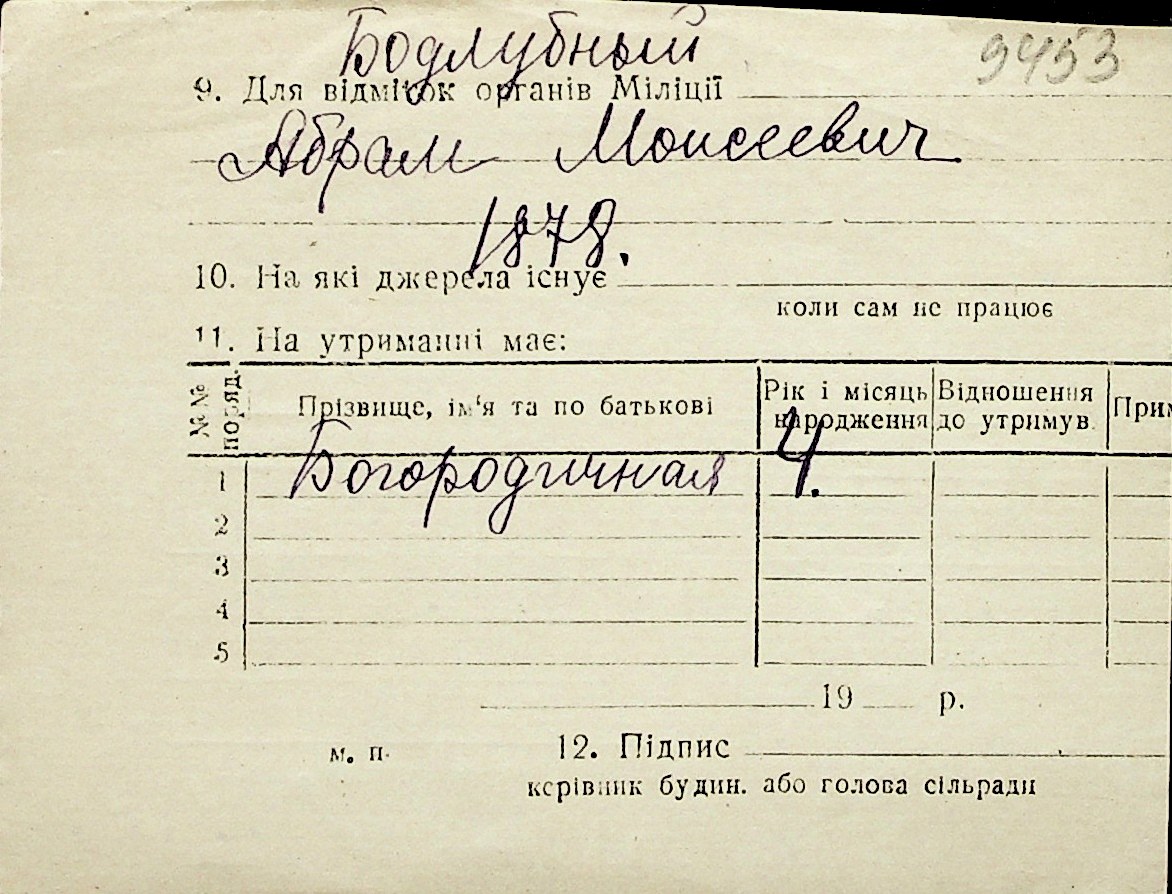 Бодлубный 9453
9. Для відміток органів Міліції
Абрам Моисеевич
1878.
10. На які джерела існує
коли сам не працює
11. На утриманні має:
№№ поряд. Прізвище, ім'я та по батькові Рік і місяць народження Відношення до утримув. Прим
1 Богородичная 4.
2
3
4
5
19 р.
м. п. 12. Підпис
керівник будин. або голова сільради